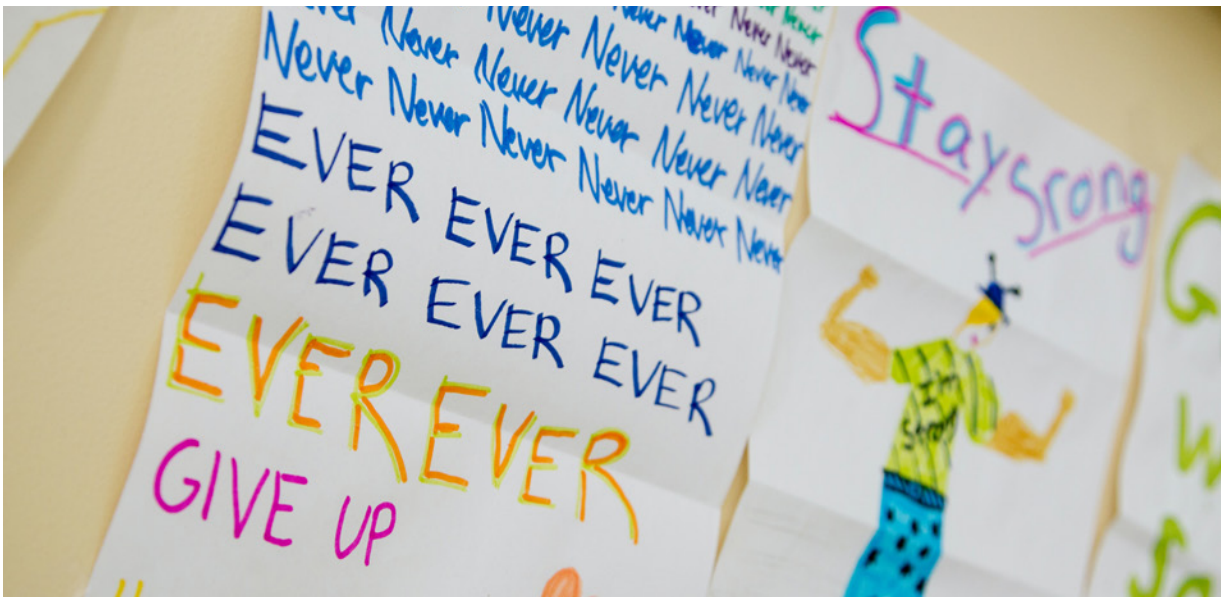 Never Never Never
Never Never Never Never Never
Never Never Never Never Never Never
Never Never Never Never Never Never
EVER EVER EVER
EVER EVER EVER
EVER EVER
GIVE UP
Stay Srong
I'm
strong
G
W